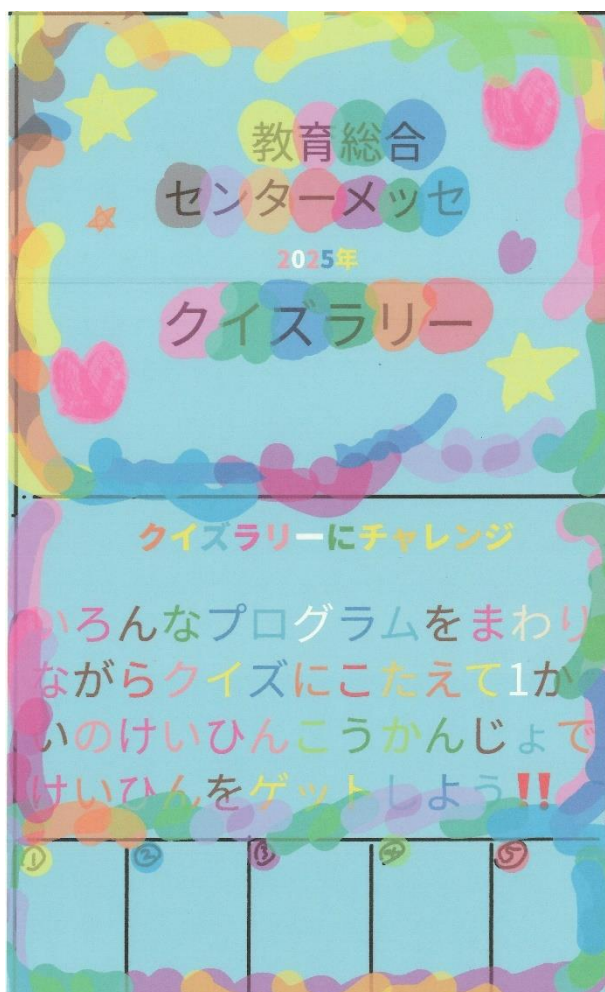 教育総合
センターメッセ
2025年
クイズラリー
クイズラリーにチャレンジ
いろんなプログラムをまわり
ながらクイズにこたえて1か
いのけいひんこうかんじょで
けいひんをゲットしよう‼
① ② ③ ④ ⑤